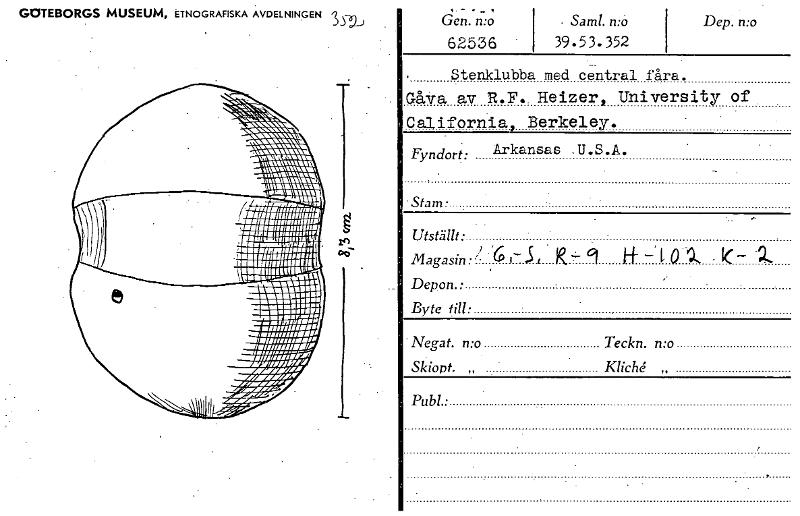 GÖTEBORGS MUSEUM, ETNOGRAFISKA AVDELNINGEN 352
8,3 cm
Gen. n:o Saml. n:o Dep. n:o
62536 39.53.352
Stenklubba med central fåra.
Gåva av R.F. Heizer, University of
California, Berkeley.
Fyndort: Arkansas U.S.A.
Stam:
Utställt:
Magasin: 6,-S, R-9 H-102 K-2
Depon.:
Byte till:
Negat. n:o Teckn. n:o
Skiopt. „ Kliché „
Publ.: